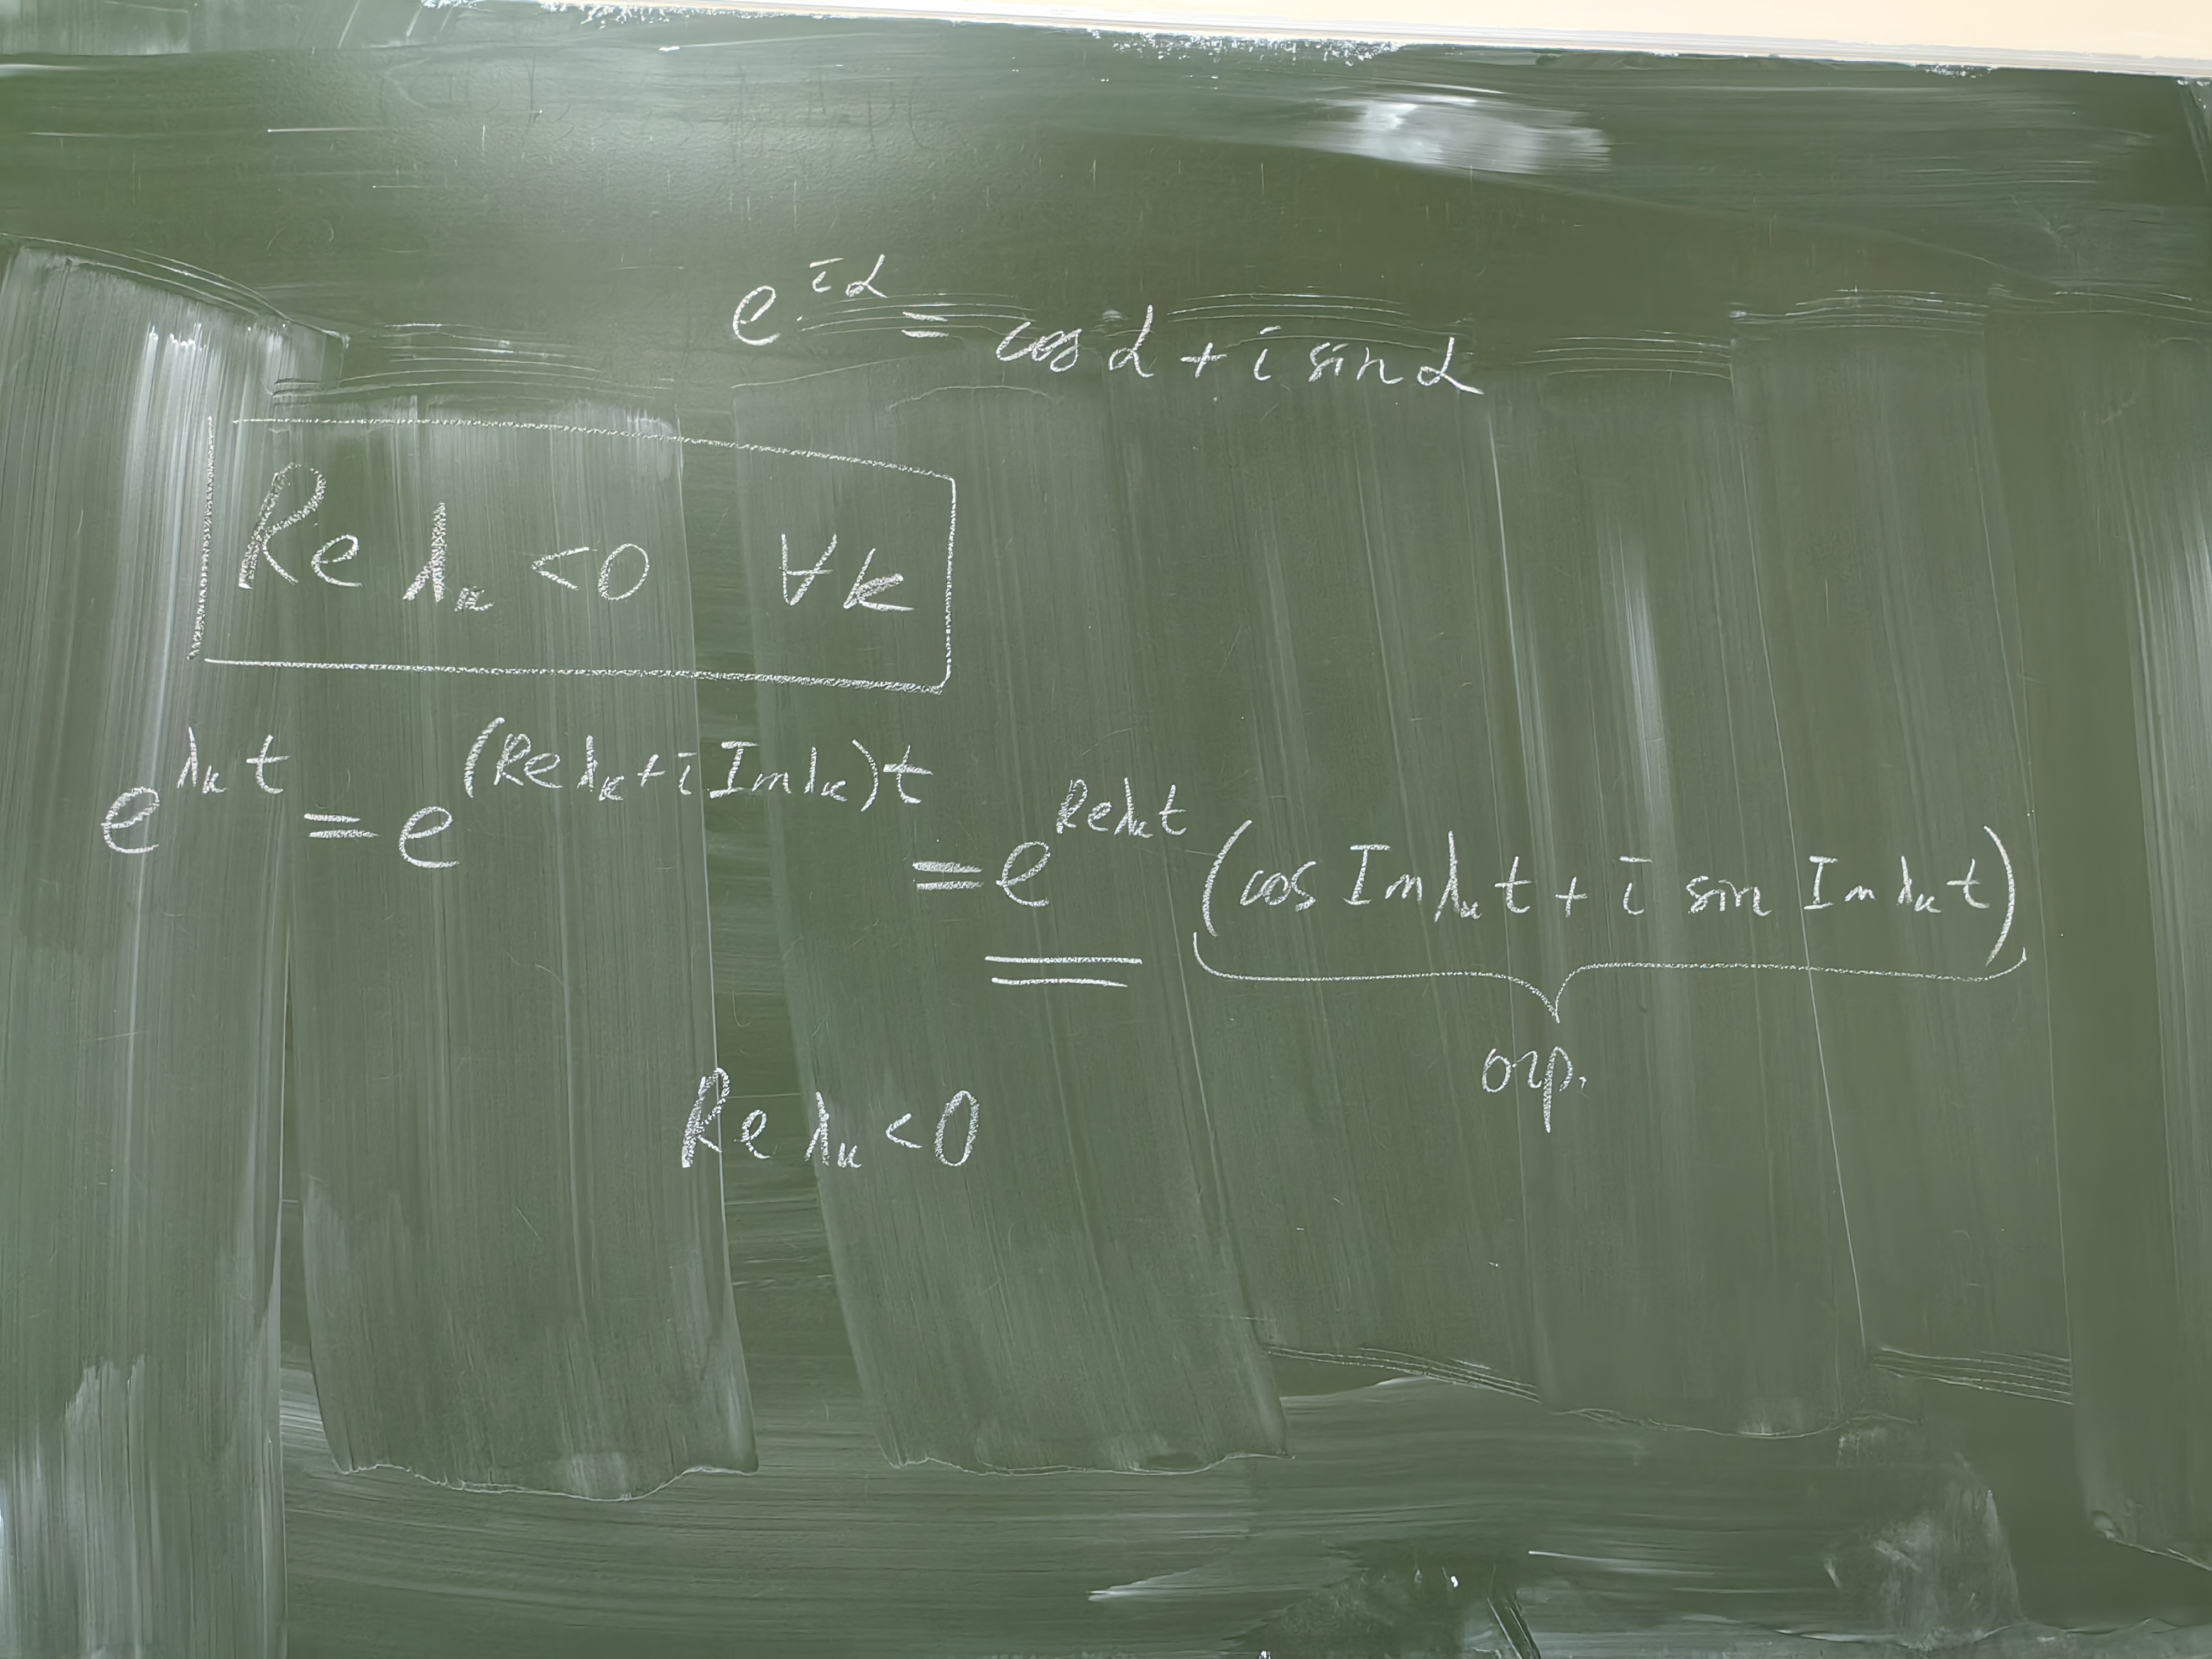 e^{iα} = cos α + i sin α
Re λ_k < 0 ∀k
e^{λ_k t} = e^{(Re λ_k + i Im λ_k) t} = e^{Re λ_k t} (cos Im λ_k t + i sin Im λ_k t)
огр.
Re λ_k < 0